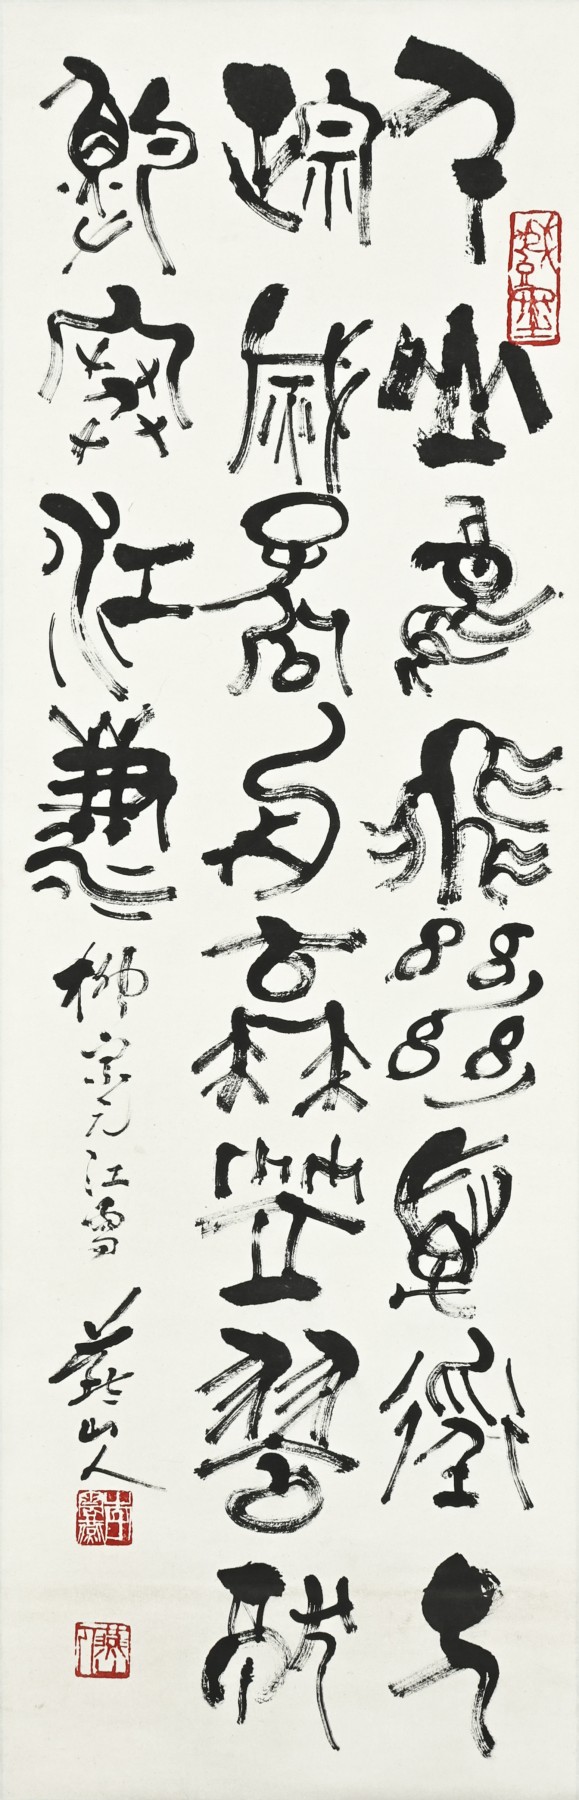 千山鳥飛絕萬徑人
踪滅孤舟蓑笠翁獨
魡寒江雪 柳宗元江雪 燕山人